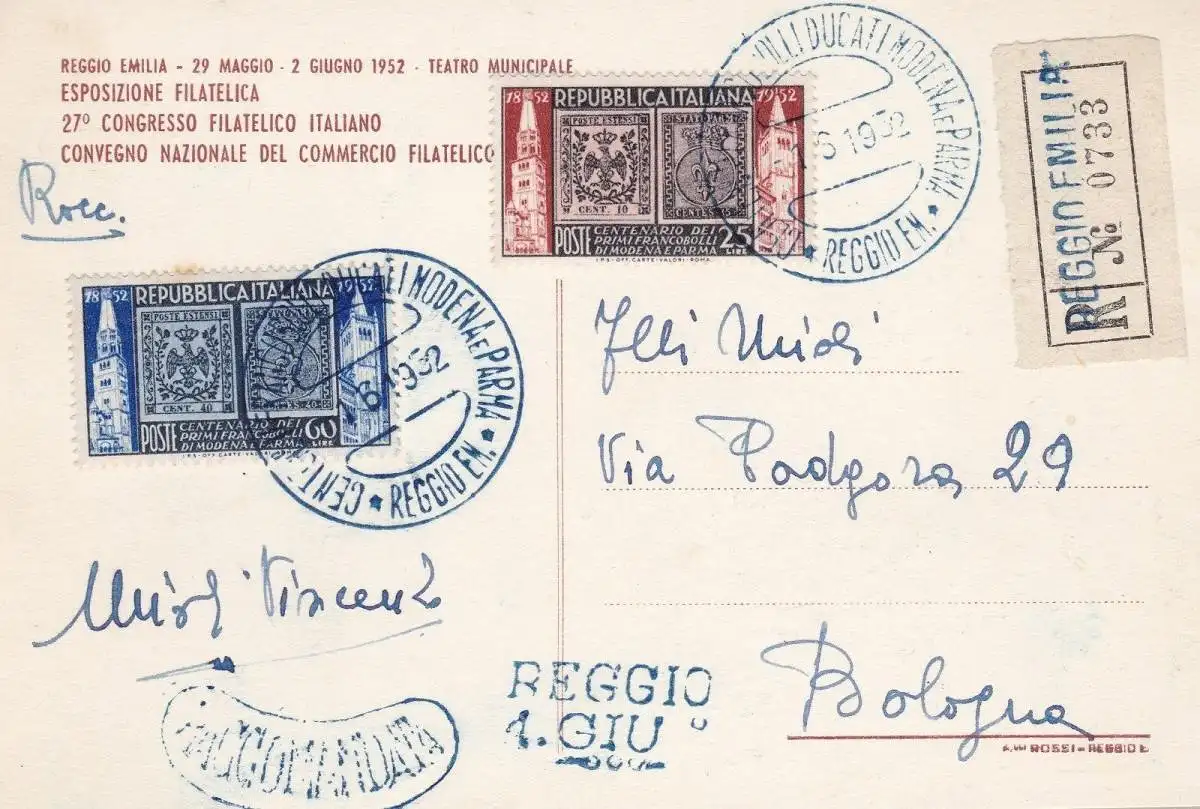 REGGIO EMILIA - 29 MAGGIO - 2 GIUGNO 1952 - TEATRO MUNICIPALE
ESPOSIZIONE FILATELICA
27º CONGRESSO FILATELICO ITALIANO
CONVEGNO NAZIONALE DEL COMMERCIO FILATELICO
Racc.
1852 REPUBBLICA ITALIANA 1952
POSTE ESTENSI
CENT. 10
STATI PARM
CENTES. 15
POSTE CENTENARIO DEI PRIMI FRANCOBOLLI DI MODENA E PARMA 25 LIRE
I.P.S.-OFF. CARTE-VALORI-ROMA
DUCATI MODENA E PARMA * REGGIO EM. *
6 1952
REGGIO EMILIA
R Nº 0733
1852 REPUBBLICA ITALIANA 1952
POSTE ESTENSI
CENT. 40
POSTE CENTENARIO DEI PRIMI FRANCOBOLLI DI MODENA E PARMA 60 LIRE
I.P.S.-OFF. CARTE-VALORI
DUCATI MODENA E PARMA * REGGIO EM. * CENTENARIO
6 1952
Flli Midi
Via Podgora 29
Bologna
Vincenzi
RACCOMANDATA
REGGIO
1. GIUº
ROSSI - REGGIO E.